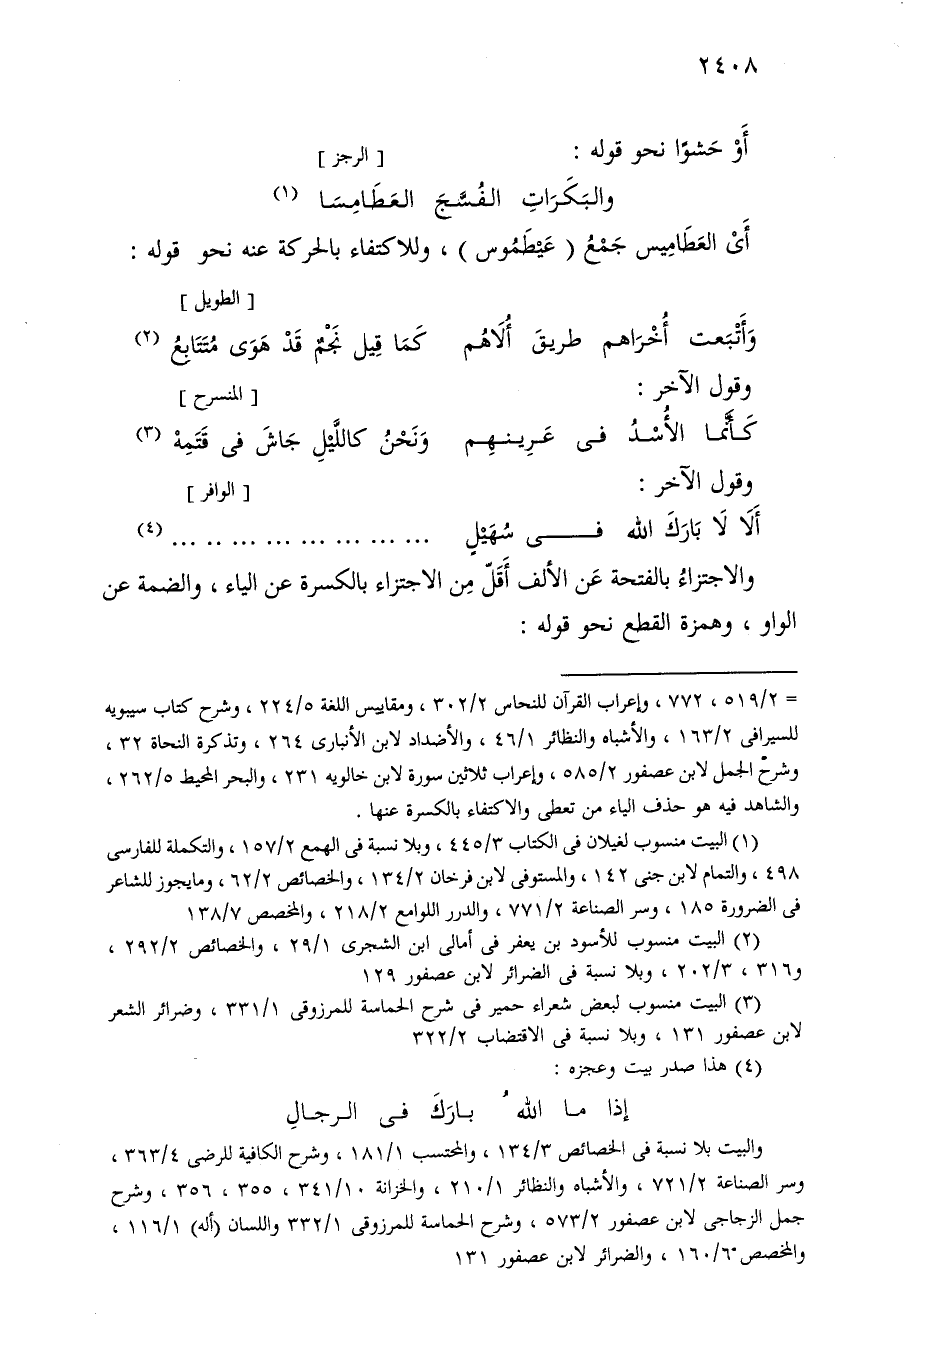 ٢٤٠٨
أَوْ حَشوًا نحو قوله : [ الرجز ]
والبَكَرَاتِ الفُسَّجَ العَطَامِسَا (١)
أَىْ العَطَامِيس جَمْعُ ( عَيْطَمُوس ) ، وللاكتفاء بالحركة عنه نحو قوله :
[ الطويل ]
وَأَتْبَعت أُخْرَاهم طريقَ أُلَاهُم كَمَا قِيل نَجْمٌ قَدْ هَوَى مُتَتَابِعُ (٢)
وقول الآخر : [ المنسرح ]
كَأَنَّما الأُسْدُ فى عَرِينهِم وَنَحْنُ كاللَّيْلِ جَاشَ فى قَتَمِهْ (٣)
وقول الآخر : [ الوافر ]
أَلَا لَا بَارَكَ الله فى سُهَيْلٍ ... ... ... ... ... ... .. ... (٤)
والاجتزاءُ بالفتحة عَن الألف أَقَلّ مِن الاجتزاء بالكسرة عن الياء ، والضمة عن
الواو ، وهمزة القطع نحو قوله :
= ٥١٩/٢ ، ٧٧٢ ، وإعراب القرآن للنحاس ٣٠٢/٢ ، ومقاييس اللغة ٢٢٤/٥ ، وشرح كتاب سيبويه
للسيرافى ١٦٣/٢ ، والأشباه والنظائر ٤٦/١ ، والأضداد لابن الأنبارى ٢٦٤ ، وتذكرة النحاة ٣٢ ،
وشرح الجمل لابن عصفور ٥٨٥/٢ ، وإعراب ثلاثين سورة لابن خالويه ٢٣١ ، والبحر المحيط ٢٦٢/٥ ،
والشاهد فيه هو حذف الياء من تعطى والاكتفاء بالكسرة عنها .
(١) البيت منسوب لغيلان فى الكتاب ٤٤٥/٣ ، وبلا نسبة فى الهمع ١٥٧/٢ ، والتكملة للفارسى
٤٩٨ ، والتمام لابن جنى ١٤٢ ، والمستوفى لابن فرخان ١٣٤/٢ ، والخصائص ٦٢/٢ ، ومايجوز للشاعر
فى الضرورة ١٨٥ ، وسر الصناعة ٧٧١/٢ ، والدرر اللوامع ٢١٨/٢ ، والمخصص ١٣٨/٧
(٢) البيت منسوب للأسود بن يعفر فى أمالى ابن الشجرى ٢٩/١ ، والخصائص ٢٩٢/٢ ،
و٣١٦ ، ٢٠٢/٣ ، وبلا نسبة فى الضرائر لابن عصفور ١٢٩
(٣) البيت منسوب لبعض شعراء حمير فى شرح الحماسة للمرزوقى ٣٣١/١ ، وضرائر الشعر
لابن عصفور ١٣١ ، وبلا نسبة فى الاقتضاب ٣٢٢/٢
(٤) هذا صدر بيت وعجزه :
إذا ما اللهُ بارَكَ فى الرجالِ
والبيت بلا نسبة فى الخصائص ١٣٤/٣ ، والمحتسب ١٨١/١ ، وشرح الكافية للرضى ٣٦٣/٤ ،
وسر الصناعة ٧٢١/٢ ، والأشباه والنظائر ٢١٠/١ ، والخزانة ٣٤١/١٠ ، ٣٥٥ ، ٣٥٦ ، وشرح
جمل الزجاجى لابن عصفور ٥٧٣/٢ ، وشرح الحماسة للمرزوقى ٣٣٢/١ واللسان (أله) ١١٦/١ ،
والمخصص ١٦٠/٦ ، والضرائر لابن عصفور ١٣١